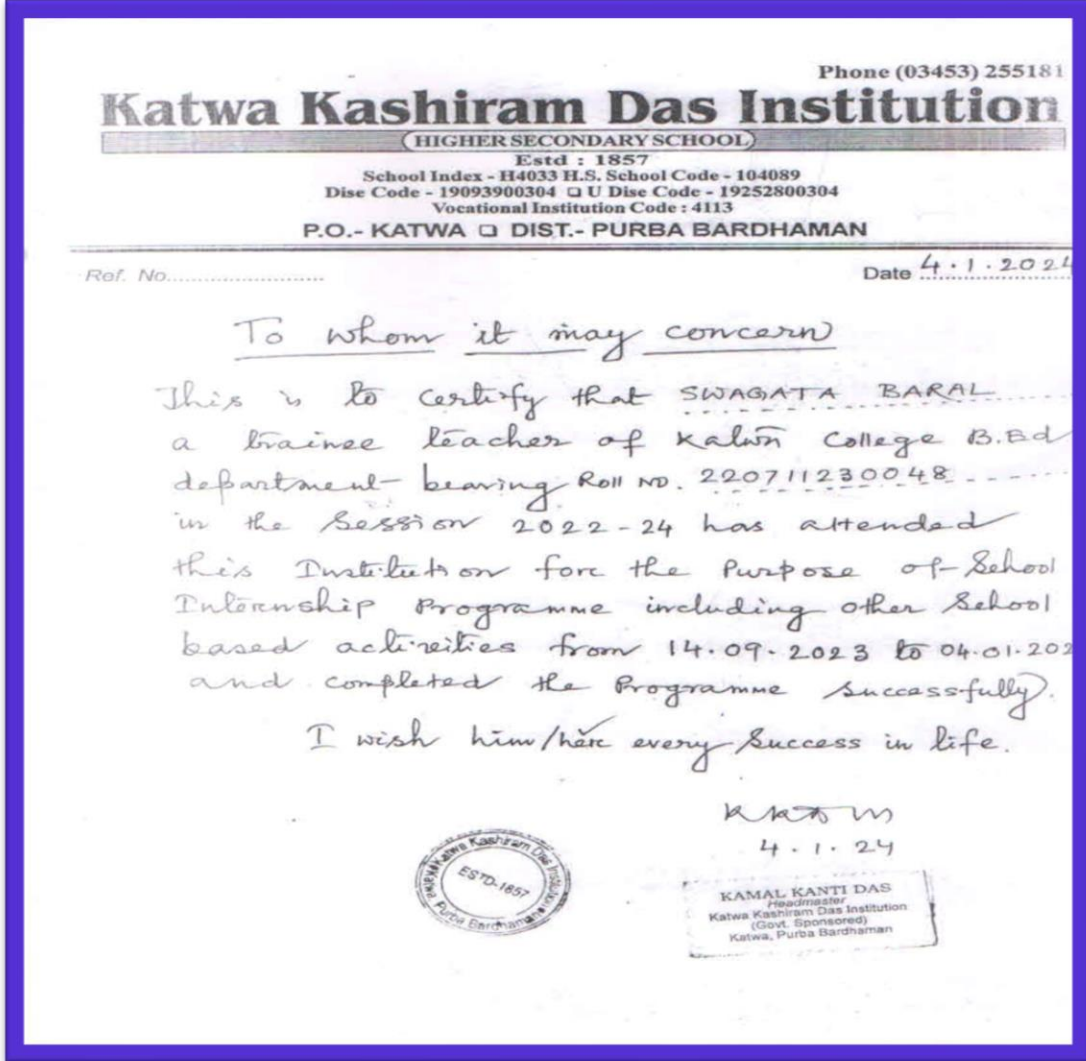 Phone (03453) 255181
Katwa Kashiram Das Institution
(HIGHER SECONDARY SCHOOL)
Estd : 1857
School Index - H4033 H.S. School Code - 104089
Dise Code - 19093900304 ❑ U Dise Code - 19252800304
Vocational Institution Code : 4113
P.O.- KATWA ❑ DIST.- PURBA BARDHAMAN
Ref. No........................ Date 4.1.2024
To whom it may concern
This is to certify that SWAGATA BARAL
a trainee teacher of Katwa College B.Ed
department bearing Roll NO. 220711230048
in the Session 2022-24 has attended
this Institution for the Purpose of School
Internship Programme including other School
based activities from 14.09.2023 to 04.01.202
and completed the Programme successfully.
I wish him/her every success in life.
4.1.24
Katwa Kashiram Das Institution
ESTD-1857
Purba Bardhaman
KAMAL KANTI DAS
Headmaster
Katwa Kashiram Das Institution
(Govt. Sponsored)
Katwa, Purba Bardhaman